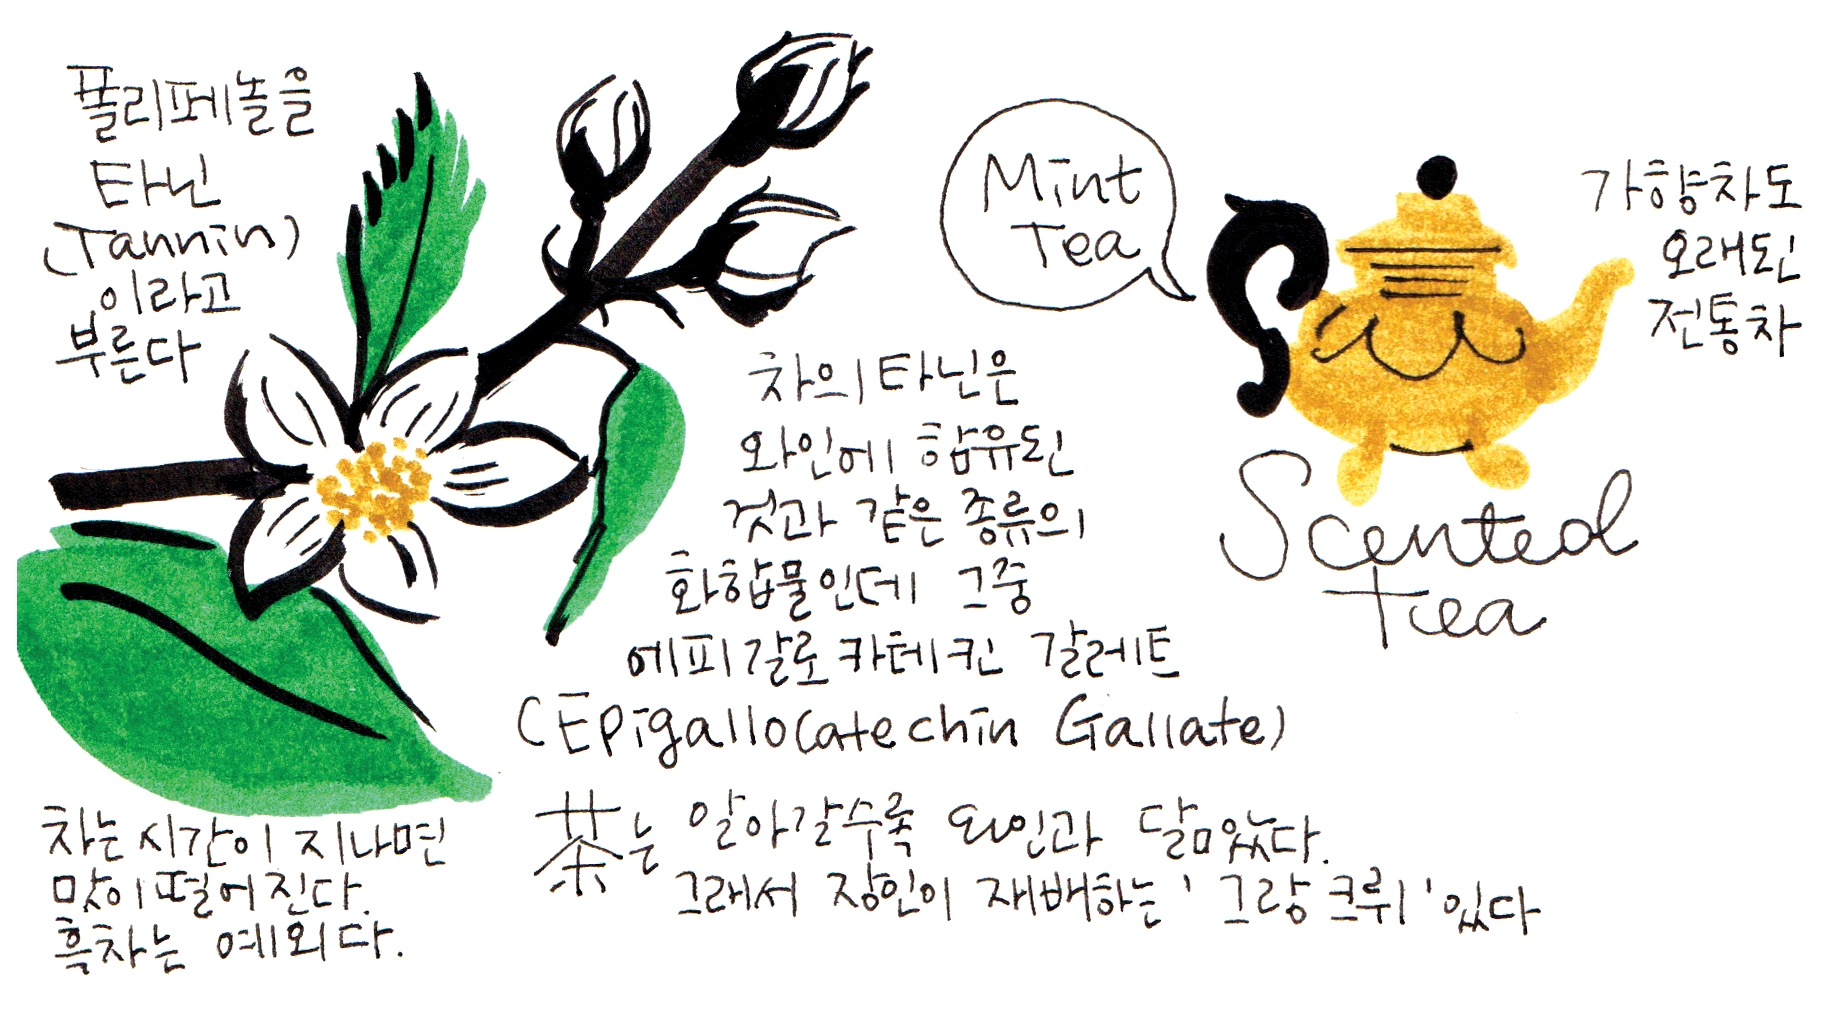 폴리페놀을
타닌
(Tannin)
이라고
부른다
Mint
Tea
가향차도
오래된
전통차
Scented
Tea
차의 타닌은
와인에 함유된
것과 같은 종류의
화합물인데 그중
에피갈로카테킨 갈레트
(Epigallocatechin Gallate)
차는 시간이 지나면
맛이 떨어진다.
흑차는 예외다.
茶는 알아갈수록 와인과 닮았다.
그래서 장인이 재배하는 '그랑 크뤼' 있다